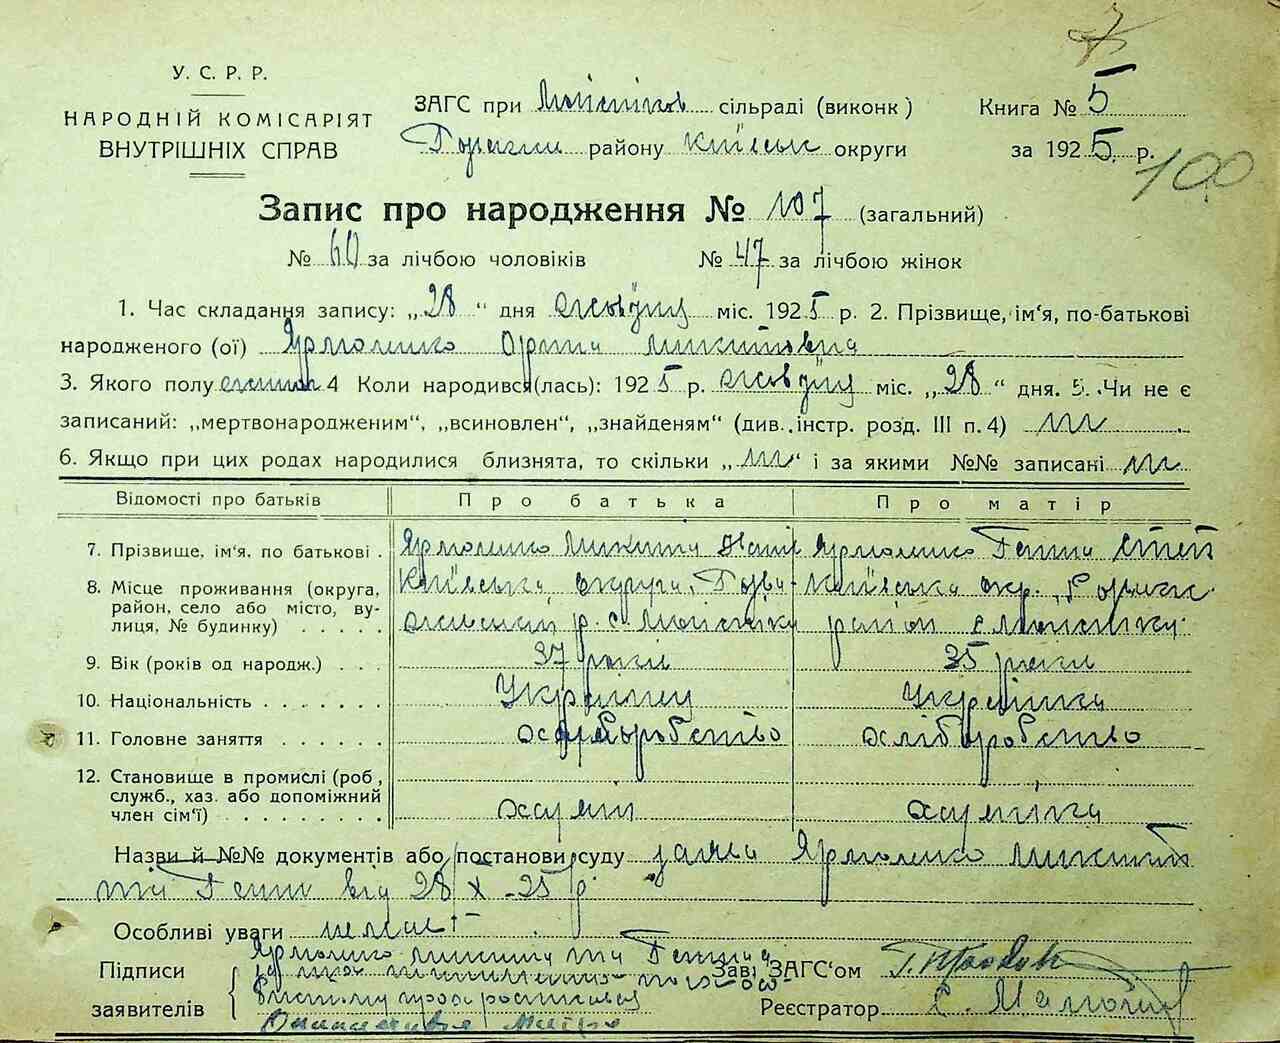 У. С. Р. Р.
НАРОДНІЙ КОМІСАРІЯТ
ВНУТРІШНІХ СПРАВ
7
ЗАГС при Мойсіїков сільраді (виконк)
району Київськ округи
Книга № 5
за 1925 р.
100
Запис про народження № 107 (загальний)
№ 60 за лічбою чоловіків № 47 за лічбою жінок
1. Час складання запису: „28" дня жовтня міс. 1925 р. 2. Прізвище, ім'я, по-батькові
народженого (ої) Ярмоленко Орина Микитовна
3. Якого полу 4 Коли народився(лась): 1925 р. жовтня міс. „28" дня. 5. Чи не є
записаний: „мертвонародженим", „всиновлен", „знайденям" (див. інстр. розд. III п. 4) ні
6. Якщо при цих родах народилися близнята, то скільки „ні" і за якими №№ записані ні
Відомості про батьків Про батька Про матір
7. Прізвище, ім'я, по батькові . Ярмоленко Микита Ярмоленко Ганна Степ
8. Місце проживання (округа, Київська округа, Київська окр.,
район, село або місто, ву- р. с. район с
лиця, № будинку) . . . . .
9. Вік (років од народж.) . . . 37 роки 35 роки
10. Національність . . . . . . . Українец Українка
11. Головне заняття . . . . . . хліборобство хліборобство
12. Становище в промислі (роб,
служб., хаз. або допоміжний
член сім'ї) . . . . . . . . . . хазяїн хазяїка
Назви й №№ документів або постанови суду заява Ярмоленко Микити
та Ганни від 28/X -25 р
Особливі уваги немає
Підписи Ярмоленко Микита та Ганна
заявителів
Зав. ЗАГС'ом
Реєстратор